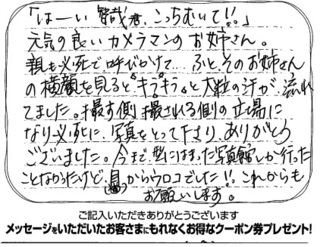 「はーい 賢哉君、こっちむいて!!」
元気の良いカメラマンのお姉さん。
親も必死で呼びかけて…ふと、そのお姉さん
の横顔を見ると“キラキラ”と大粒の汗が、流れ
てました。撮す側 撮される側の立場に
なり必死に、写真をとって下さり、ありがとう
ございました。今まで、型にはまった写真館しか行った
ことなかったけど、目からウロコでした!!これからも
お願いします。
ご記入いただきありがとうございます
メッセージをいただいたお客さまにもれなくお得なクーポン券プレゼント!